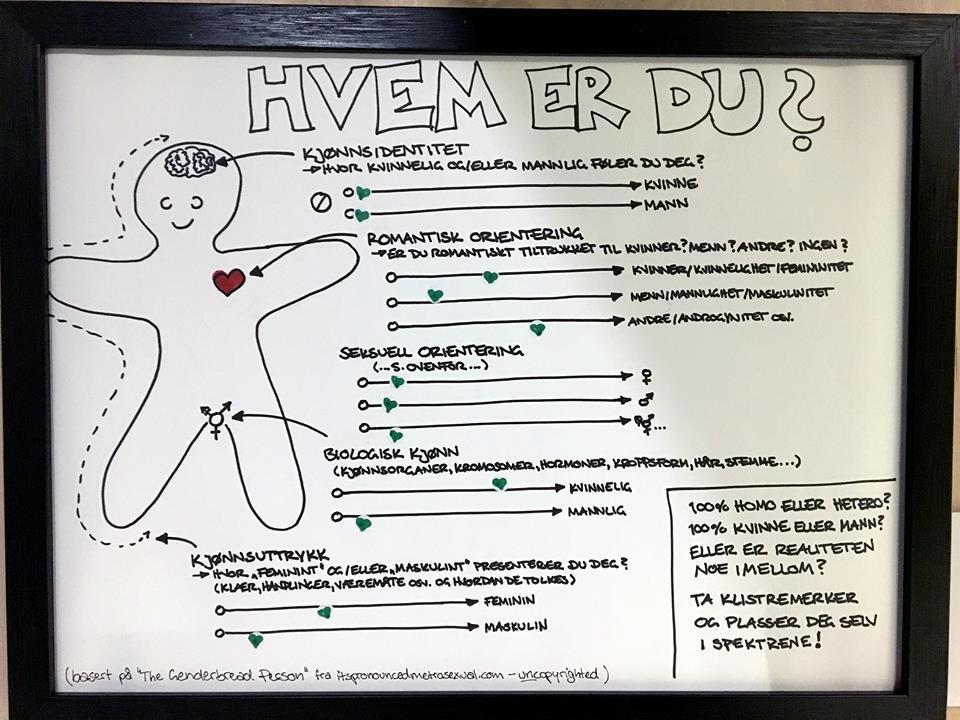 HVEM ER DU?
KJØNNSIDENTITET
→HVOR KVINNELIG OG/ELLER MANNLIG FØLER DU DEG?
KVINNE
MANN
ROMANTISK ORIENTERING
→ER DU ROMANTISKT TILTRUKKET TIL KVINNER? MENN? ANDRE? INGEN?
KVINNER/KVINNELIGHET/FEMININITET
MENN/MANNLIGHET/MASKULINITET
ANDRE/ANDROGYNITET OSV.
SEKSUELL ORIENTERING
(...S. OVENFOR...)
♀
♂
⚧...
BIOLOGISK KJØNN
(KJØNNSORGANER, KROMOSOMER, HORMONER, KROPPSFORM, HÅR, STEMME...)
KVINNELIG
MANNLIG
KJØNNSUTTRYKK
→HVOR „FEMININT" OG/ELLER „MASKULINT" PRESENTERER DU DEG?
(KLÆR, HANDLINGER, VÆREMÅTE OSV. OG HVORDAN DE TOLKES)
FEMININ
MASKULIN
100% HOMO ELLER HETERO?
100% KVINNE ELLER MANN?
ELLER ER REALITETEN
NOE IMELLOM?
TA KLISTREMERKER
OG PLASSER DEG SELV
I SPEKTRENE!
(basert på "The Genderbread Person" fra itspronouncedmetrosexual.com - uncopyrighted)